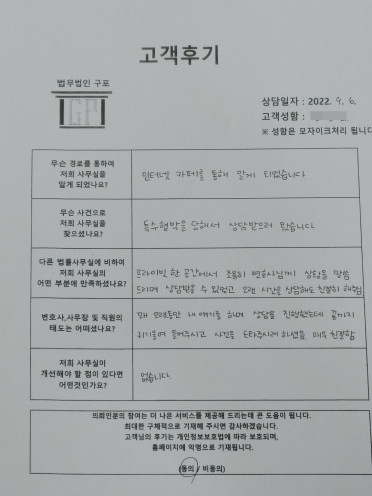 고객후기
법무법인 구포
GP
상담일자 : 2022. 9. 6.
고객성함 :
※ 성함은 모자이크처리 됩니다
무슨 경로를 통하여
저희 사무실을
알게 되었나요?
인터넷 카페를 통해 알게 되었습니다
무슨 사건으로
저희 사무실을
찾으셨나요?
특수협박을 당해서 상담받으러 왔습니다.
다른 법률사무실에 비하여
저희 사무실의
어떤 부분에 만족하셨나요?
프라이빗 한 공간에서 조용히 변호사님께 상담을 말씀
드리며 상담받을 수 있었고 오랜 시간을 상담해도 친절히 해주심
변호사,사무장 및 직원의
태도는 어떠셨나요?
꽤 오랫동안 내 얘기를 하며 상담을 진행했는데 끝까지
귀기울여 들어주시고 사건을 도와주시려 하셨음. 매우 친절함
저희 사무실이
개선해야 할 점이 있다면
어떤것인가요?
없습니다.
의뢰인분의 참여는 더 나은 서비스를 제공해 드리는데 큰 도움이 됩니다.
최대한 구체적으로 기재해 주시면 감사하겠습니다.
고객님의 후기는 개인정보보호법에 따라 보호되며,
홈페이지에 익명으로 기재됩니다.
(동의 / 비동의)